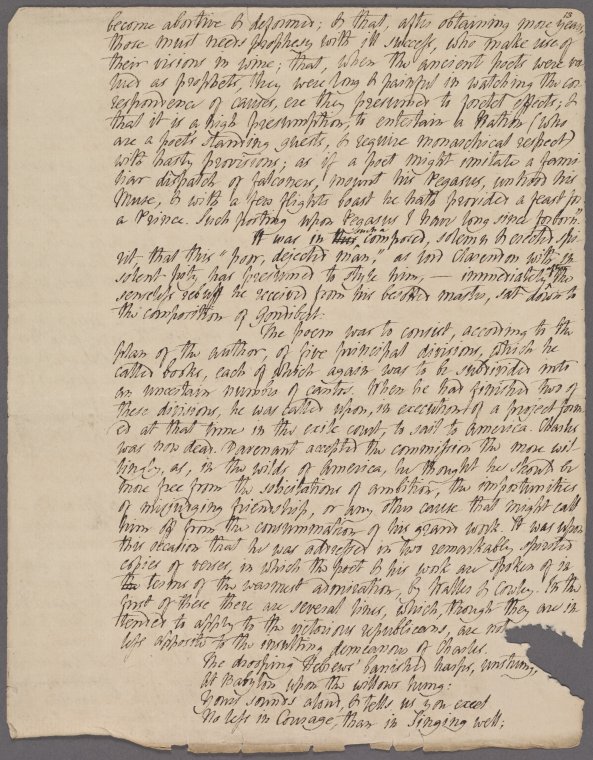 13
become abortive & deformed; & that, after obtaining more years,
those must needs prophesy with ill success, who make use of
their visions in wine; that, when the ancient poets were va-
lued as prophets, they were long & painful in watching the cor-
respondence of causes, ere they presumed to foretel effects; &
that it is a high presumption, to entertain a Nation (who
are a poets standing guests, & require monarchical respect)
with hasty provisions; as if a poet might imitate a fami-
liar dispatch of falconers, mount his Pegasus, unhood his
Muse, & with a few flights boast he hath provided a feast for
a Prince. Such posting upon Pegasus I have long since forborn"
It was in this such a composed, solemn & erected spi-
rit that this "poor, dejected man," as lord Clarendon with in
solent pity, has presumed to style him, — immediately after the
senseless rebuff he received from his besotted master, sat down to
the composition of Gondibert.
The poem was to consist, according to the
plan of the author, of five principal divisions, which he
called books, each of which again was to be subdivided into
an uncertain number of cantos. When he had finished two of
these divisions, he was called upon, in execution of a project form-
ed at that time in the exile court, to sail to America. Charles
was now dead. Davenant accepted the commission the more wil-
lingly, as, in the wilds of America, he thought he should be
more free from the solicitations of ambition, the importunities
of misjudging friendship, or any other cause that might call
him off from the consummation of his grand work. It was upon
this occasion that he was addressed in two remarkably spirited
copies of verses, in which the poet & his work are spoken of in
the terms of the warmest admiration, by Waller & Cowley. In the
first of these there are several lines, which, though they are in
tended to apply to the victorious republicans, are not
less apposite to the insulting demeanour of Charles.
The drooping Hebrews' banished harps, unstrung,
At Babylon upon the willows hung:
Yours sounds aloud, & tells us you excel
No less in Courage, than in Singing well;